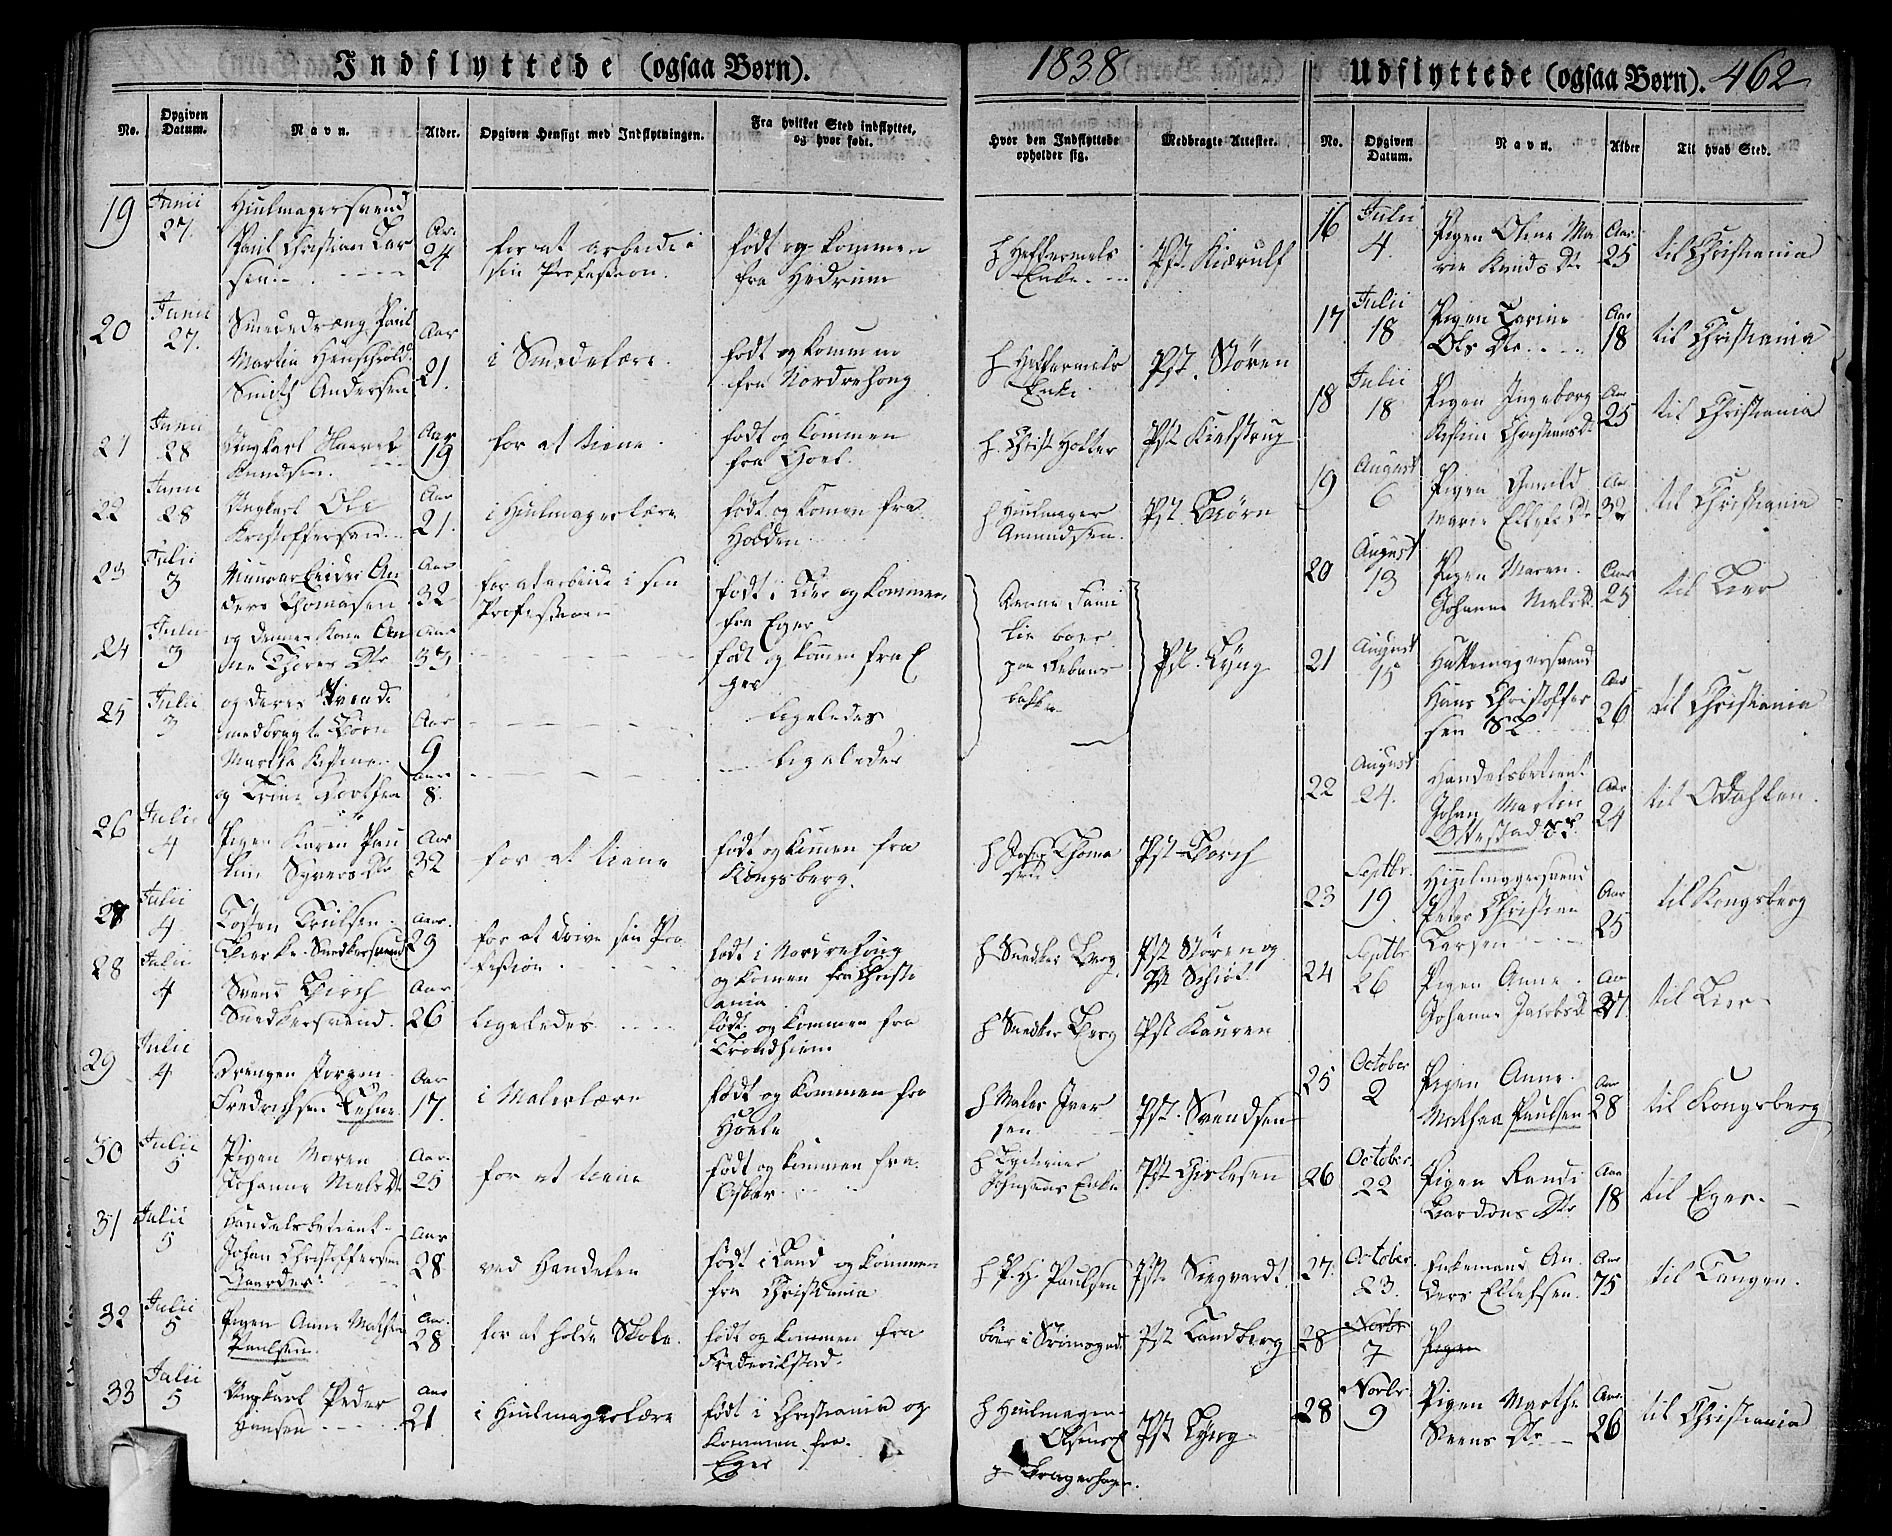 Indflyttede (ogsaa Børn).
1838
Udflyttede (ogsaa Børn). 462
No. Opgiven Datum. Navn. Alder. Opgiven Hensigt med Indflytningen. Fra hvilket Sted indflyttet, og hvor født. Hvor den Indflyttede opholder sig. Medbragte Attester.
19 Junii 27. Hiulmagersvend
Paul Christian Lar
sen Aar 24
for at arbeide i
sin Profession.
født og kommen
fra Hedrum
h Heftermels
Enke.
Pst. Kierulf
20 Junii 27. Smededreng Paul
Martin
Smith Andersen Aar 21.
i Smedelære.
født og kommen
fra Nordrehong
h Heftermels
Enke
Pst. Støren
21 Junii 28 Ungkarl
Knudsen Aar 19
for at tiene.
født og kommen
fra Hoel.
h. Christ Holter
Pst Kielstrup
22 Junii 28 Ungkarl Ole
Kristoffersen Aar 21.
i Hiulmagerlære
født og komen fra
Holden
h Hiulmager
Amundsen.
Pst. Biørn
23 Julii 3 Anders Thomasen Aar 32
for at arbeide i sin
Profession
født i Lier og kommen
fra Eger
Denne Fami
lie boer
paa
Pst. Lyng
24 Julii 3 og dennes Kone An
ne Thores Dtr Aar 33
født og kommen fra E
ger
25 Julii 3 og deres tvende
medbragte Børn
Martha Kistine Aar 9
Ligeledes
og Trine Dorthea Aar 8.
Ligeledes
26 Julii 4 Pigen Karen Pau
line Syvers Dtr Aar 32
for at tiene
født og kommen fra
Kongsberg.
h Thoma
sen
Pst Borch
27 Julii 4 Tosten Trulsen
Bierke Snedkersvend Aar 29
for at drive sin Pro
fession.
født i Nordrehong
og komen fra Christi
ania
h Snedker Berg
Pst Støren og
Pst Schiøt
28 Julii 4 Svend Birch
Snedkersvend. Aar 26
Ligeledes
født og kommen fra
Trondhiem
h Snedker Berg
Pst Kauren
29 Julii 4 Drengen Jørgen
Fredrichsen Lehne Aar 17.
i Malerlære
født og kommen fra
Hoele
h Maler Iver
sen
Pst. Svendsen
30 Julii 5 Pigen Maren
Johanne Niels Dtr Aar 25
for at tiene
født og kommen fra
Asker
h
Johnsens Enke
Pst Gislesen
31 Julii 5 Handelsbetient
Johan Christoffersen
Gaarder Aar 28
ved Handelen
født i Land og kommen
fra Christiania
h P. H. Paulsen
Pst. Siegvardt
32 Julii 5 Pigen Anne Mathea
Paulsen. Aar 28
for at holde Skole.
født og kommen fra
Frederikstad.
boer i Strømsgade
Pst Landberg
33 Julii 5 Ungkarl Peder
Hansen Aar 21
i Hiulmagerlære
født i Christiania og
kommen fra
Eger
h Hiulmager
Olsens E
p Bragerhagen.
Pst Lyng
No. Opgiven Datum. Navn. Alder Til hvad Sted.
16 Julii 4. Pigen Oline Ma
rie Knuds Dtr Aar 25 til Christiania
17 Julii 18 Pigen Karine
Ols Dtr. Aar 18 til Christiania
18 Julii 18 Pigen Ingeborg
Kistine Christensdtr Aar 25 til Christiania
19 August 6 Pigen Gunild
Marie Ellefs Dtr Aar 32 til Christiania
20 August 13 Pigen Maren
Johanne Nielsdtr Aar 25 til Lier
21 August 15 Hattemagersvend
Hans Christoffer
sen Aar 26 til Christiania
22 August 24. Handelsbetient
Johan Martin
Ottestad Aar 24 til Odahlen.
23 Septbr 19 Hiulmagersvend
Peter Christian
Larsen Aar 25 til Kongsberg
24 Septbr 26 Pigen Anne
Johanne Jacobsd Aar 27. til Lier
25 October 2 Pigen Anne
Mathea Paulsen Aar 28 til Kongsberg
26 October 22 Pigen Randi
Bardons Dtr Aar 18 til Eger.
27. October 23. Enkemand An
ders Ellefsen. Aar 75 til Tangen.
28 Novbr 7 Pigen
28 Novbr 9 Pigen Marthe
Steens Dtr Aar 26 til Christiania